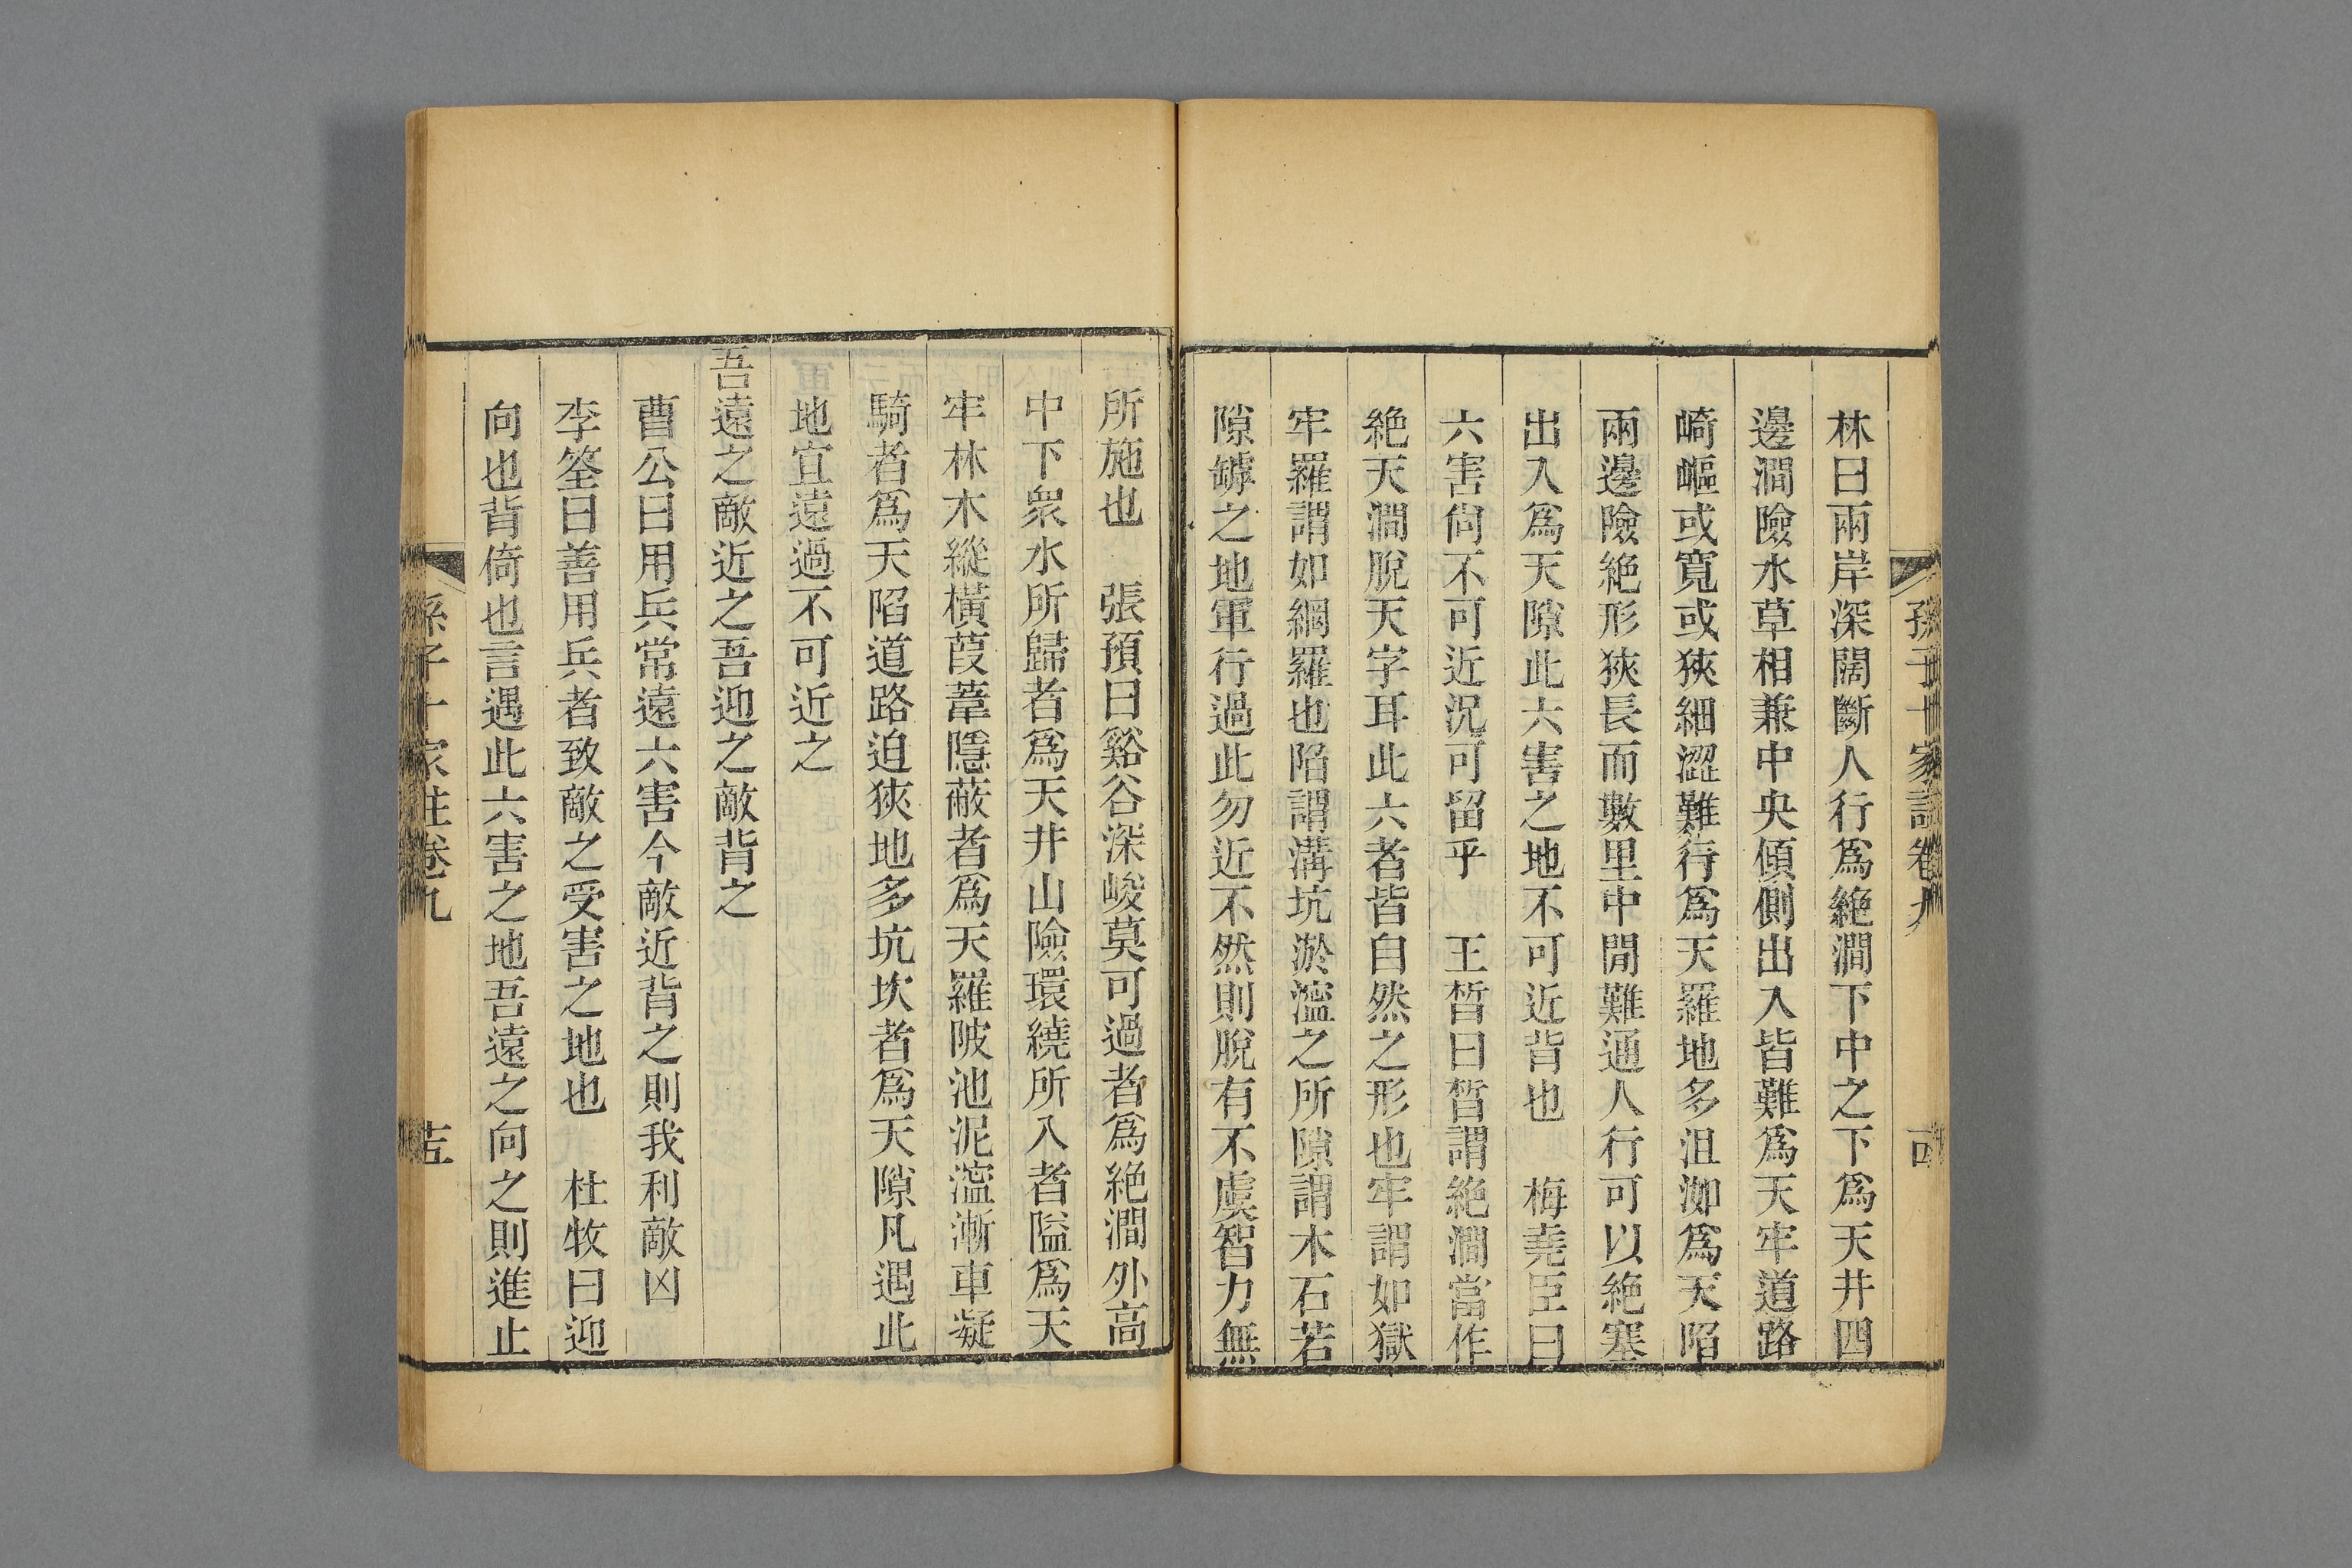 孫子十家註卷九
林曰兩岸深闊斷人行爲絶澗下中之下爲天井四
邊澗險水草相兼中央傾側出入皆難爲天牢道路
崎嶇或寬或狹細澀難行爲天羅地多沮洳爲天陷
兩邊險絶形狹長而數里中閒難通人行可以絶塞
出入爲天隙此六害之地不可近背也　梅堯臣曰
六害尙不可近況可留乎　王晳曰晳謂絶澗當作
絶天澗脫天字耳此六者皆自然之形也牢謂如獄
牢羅謂如網羅也陷謂溝坑淤濘之所隙謂木石若
隙罅之地軍行過此勿近不然則脫有不虞智力無
所施也　張預曰谿谷深峻莫可過者爲絶澗外高
中下衆水所歸者爲天井山險環繞所入者隘爲天
牢林木縱橫葭葦隱蔽者爲天羅陂池泥濘漸車凝
騎者爲天陷道路迫狹地多坑坎者爲天隙凡遇此
地宜遠過不可近之
吾遠之敵近之吾迎之敵背之
曹公曰用兵常遠六害今敵近背之則我利敵凶
李筌曰善用兵者致敵之受害之地也　杜牧曰迎
向也背倚也言遇此六害之地吾遠之向之則進止
孫子十家註卷九